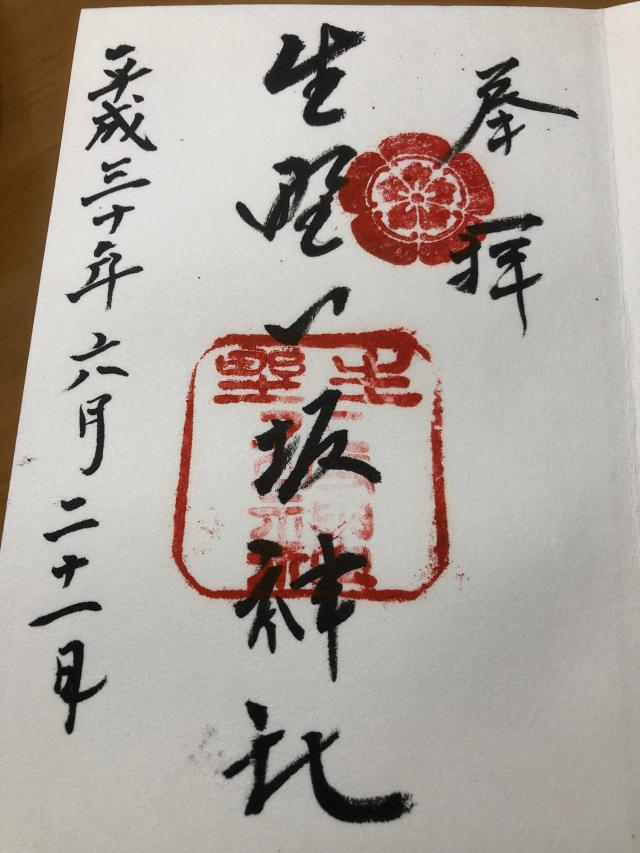 奉拝
生野八坂神社
平成三十年六月二十一日
生野